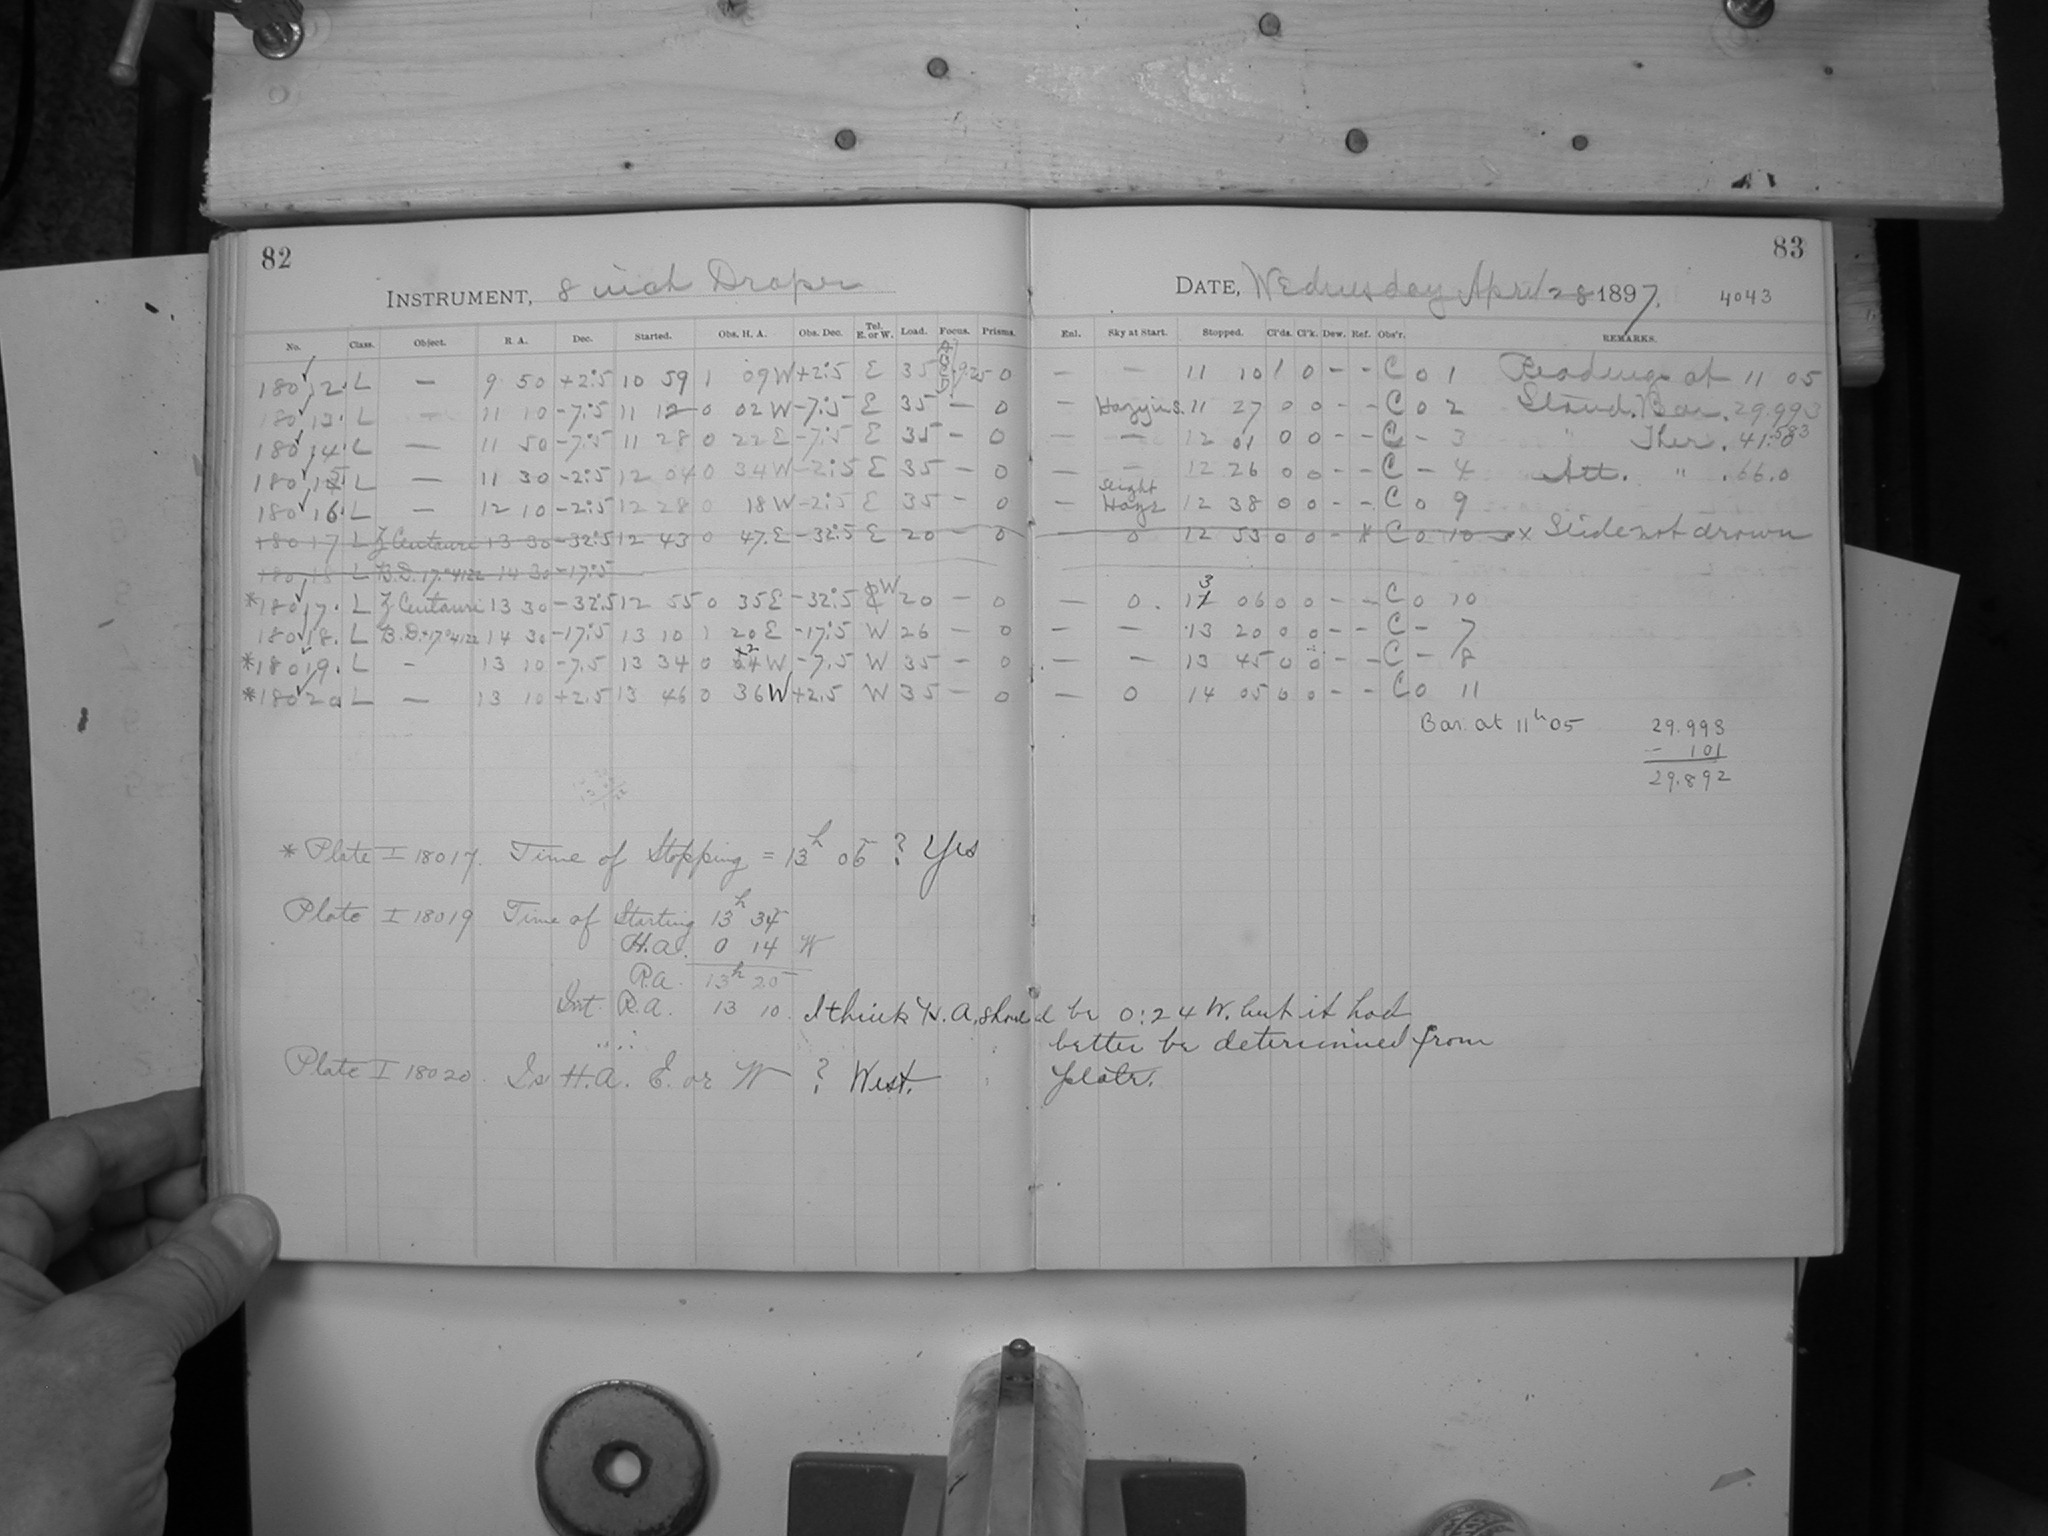 82
83
INSTRUMENT, 8 inch Draper
DATE, Wednesday April 28 1897, 4043
No. Class. Object. R. A. Dec. Started. Obs. H. A. Obs. Dec. Tel. E. or W. Load. Focus. Prisms. Enl. Sky at Start. Stopped. Cl'ds. Cl'k. Dew. Ref. Obs'r. REMARKS.
18012. L — 9 50 +2.5 10 59 1 09 W +2.5 E 35 .925 0 — — 11 10 1 0 – – C 0 1 Readings at 11 05
18013. L — 11 10 -7.5 11 12 0 02 W -7.5 E 35 — 0 — 11 27 0 0 – – C 0 2 Stand. Bar. 29.993
18014. L — 11 50 -7.5 11 28 0 22 E -7.5 E 35 – 0 — — 12 01 0 0 – – C – 3 " Ther. 41.
18015 L — 11 30 -2.5 12 04 0 34 W -2.5 E 35 – 0 — — 12 26 0 0 – – C – 4 Att. " .66.0
18016. L — 12 10 -2.5 12 28 0 18 W -2.5 E 35 – 0 — Slight Haze 12 38 0 0 – – C 0 9
18017 L Z Centauri 13 30 -32.5 12 43 0 47 E -32.5 E 20 – 0 — 0 12 53 0 0 – * C 0 10 x Slide not drawn
18018 L B.D. 17.°4122 14 30 -17.5
*18017. L Z Centauri 13 30 -32.5 12 55 0 35 E -32.5 E W 20 – 0 — 0. 12 3 06 0 0 – – C 0 10
18018. L B.D.+17°4122 14 30 -17.5 13 10 1 20 E -17.5 W 26 – 0 — — 13 20 0 0 – – C – 7
*18019. L – 13 10 -7.5 13 34 0 24 W -7.5 W 35 – 0 — — 13 45 0 0 – – C – 8
*18020 L — 13 10 +2.5 13 46 0 36 W +2.5 W 35 – 0 — 0 14 05 0 0 – – C 0 11
Bar. at 11h 05 29.993
– 101
29.892
* Plate I 18017. Time of Stopping = 13h 06 ? Yes
Plate I 18019 Time of Starting 13h 34
H.A. 0 14 W
R.A. 13h 20
Int. R.A. 13 10. I think H. A. should be 0:24 W. but it had
better be determined from
plate.
Plate I 18020. Is H.A. E. or W ? West.